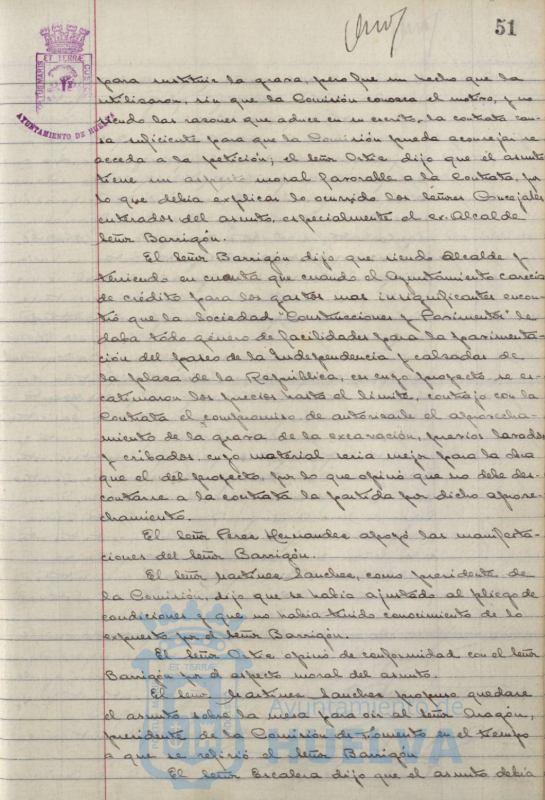 51
PORTUS MARIS ET TERRÆ CUSTODIA
AYUNTAMIENTO DE HUELVA
para sustituir la grava, pero fue un hecho que la
utilizaron, sin que la Comisión conozca el motivo, y no
siendo las razones que aduce en su escrito, la contrata cau-
sa suficiente para que la Comisión pueda aconsejar se
acceda a la petición; el señor Ortiz dijo que el asunto
tiene un aspecto moral favorable a la Contrata, por
lo que debía explicar lo ocurrido los señores Concejales
enterados del asunto, especialmente el ex-Alcalde
señor Barrigón.
El señor Barrigón dijo que siendo Alcalde y
teniendo en cuenta que cuando el Ayuntamiento carecía
de crédito para los gastos mas insignificantes encon-
tró que la Sociedad "Construcciones y Pavimentos" le
daba todo género de facilidades para la pavimenta-
ción del paseo de la Independencia y calzadas de
la plaza de la República, en cuyo proyecto se es-
catimaron los precios hasta el límite, contrajo con la
Contrata el compromiso de autorizarle el aprovecha-
miento de la grava de la excavación, previos lavados
y cribados, cuyo material sería mejor para la obra
que el del proyecto, por lo que opinó que no debe des-
contarse a la contrata la partida por dicho aprove-
chamiento.
El señor Perez Hernandez apoyó las manifesta-
ciones del señor Barrigón.
El señor Martinez Sanchez, como presidente de
la Comisión, dijo que se había ajustado al pliego de
condiciones y que no había tenido conocimiento de lo
expuesto por el señor Barrigón.
El señor Ortiz opinó de conformidad con el señor
Barrigón por el aspecto moral del asunto.
El señor Martinez Sanchez propuso quedase
el asunto sobre la mesa para oir al señor Aragón,
presidente de la Comisión de Fomento en el tiempo
a que se refirió el señor Barrigón
El señor Escalera dijo que el asunto debía
ET TERRÆ
Ayuntamiento de
HUELVA